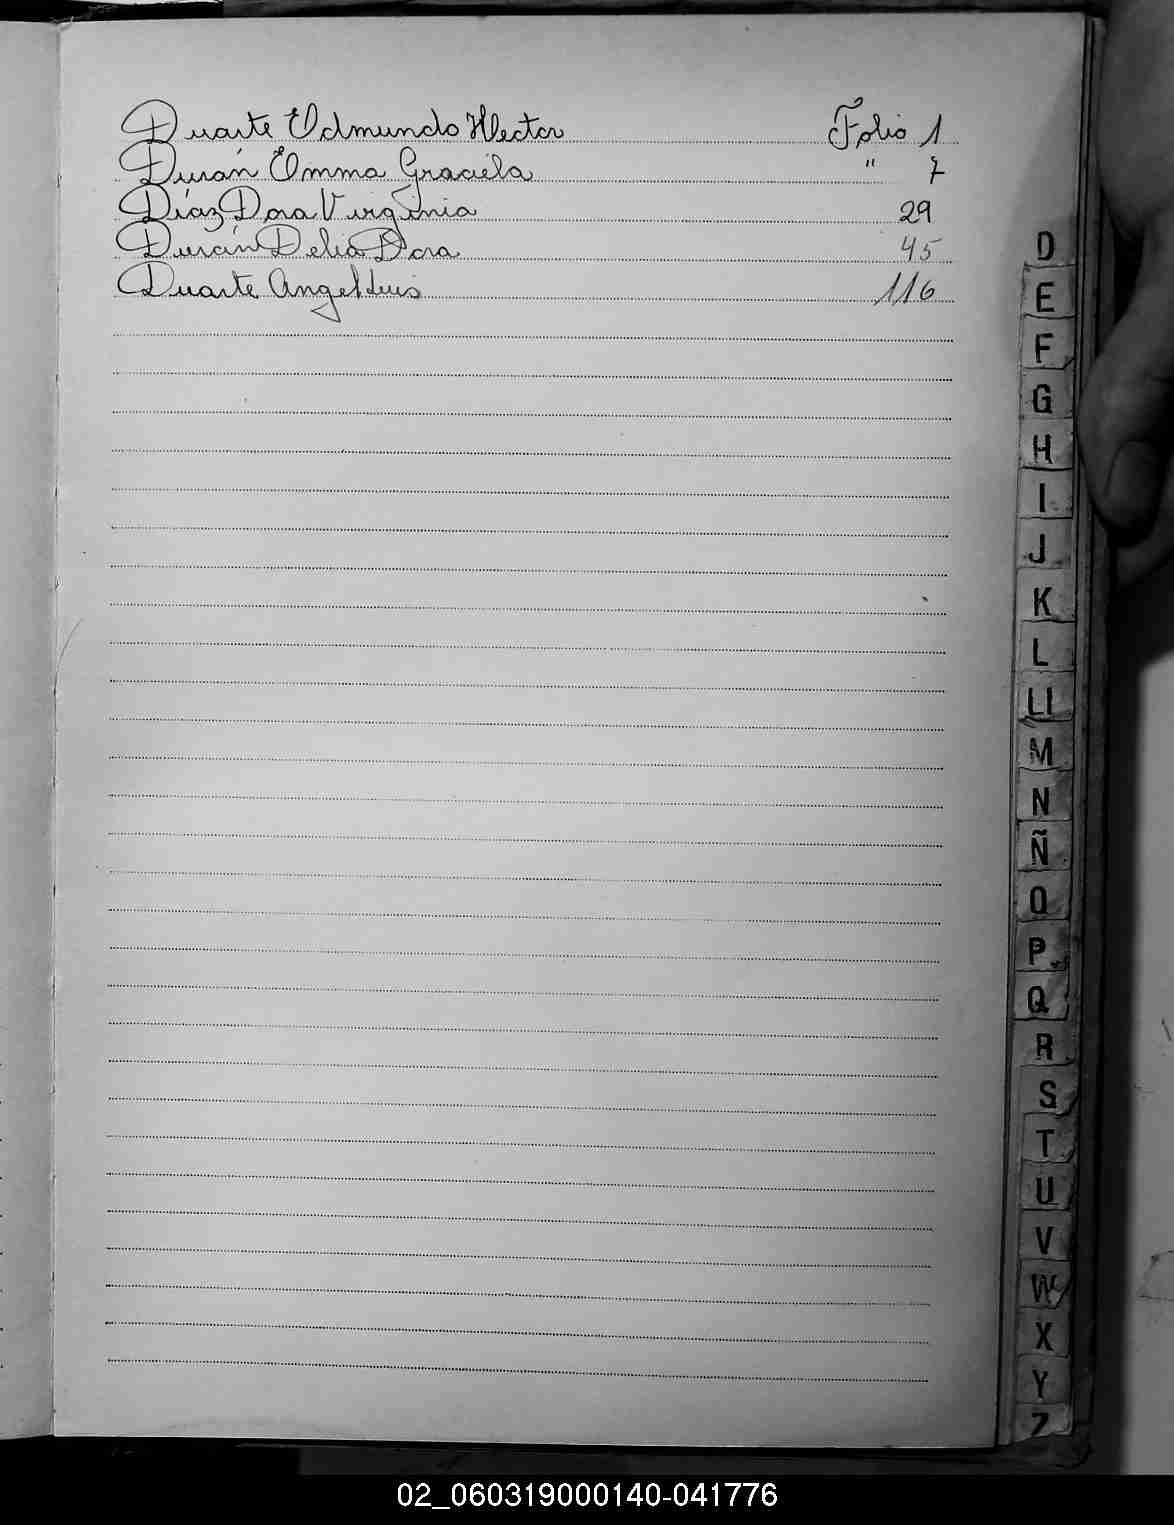 Duarte Edmundo Hector Folio 1
Durán Emma Graciela " 7
Díaz Dora Virginia 29
Durán Delia Dora 45
Duarte Angel Luis 116
D
E
F
G
H
I
J
K
L
Ll
M
N
Ñ
O
P
Q
R
S
T
U
V
W
X
Y
Z
02_060319000140-041776